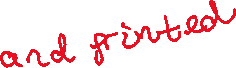 and printed